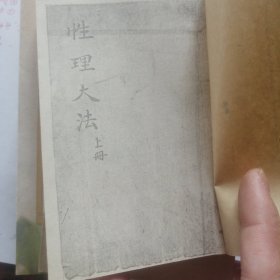 性理大法
上冊